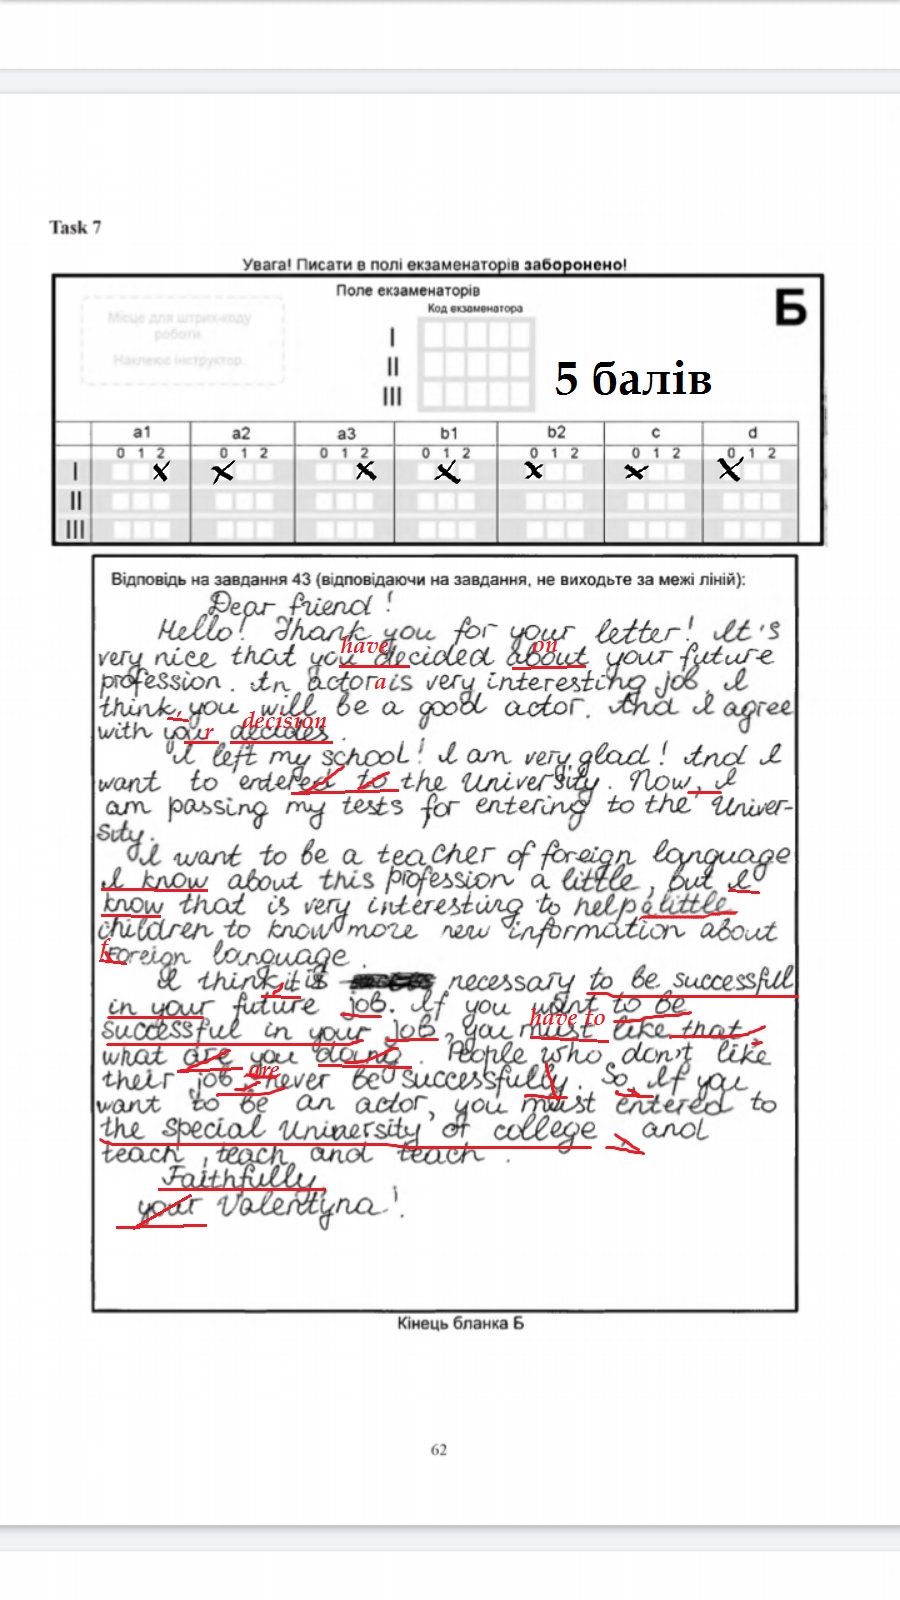 Task 7
Увага! Писати в полі екзаменаторів заборонено!
Поле екзаменаторів
Код екзаменатора
Б
Місце для штрих-коду
роботи.
Наклеює інструктор.
I
II
III
5 балів
a1 a2 a3 b1 b2 c d
0 1 2 0 1 2 0 1 2 0 1 2 0 1 2 0 1 2 0 1 2
I X X X X X X X
II
III
Відповідь на завдання 43 (відповідаючи на завдання, не виходьте за межі ліній):
Dear friend!
Hello! Thank you for your letter! It's
have on
very nice that you decided about your future
profession. An actor a is very interesting job. I
think, you will be a good actor. And I agree
r decision
with your decides.
I left my school! I am very glad! And I
want to entered to the University. Now, I
am passing my tests for entering to the Univer-
sity.
I want to be a teacher of foreign language
I know about this profession a little, but I
know that is very interesting to help a little
children to know more new information about
f
Foreign language.
I think, it is necessary to be successful
in your future job. If you want to be
have to
successful in your job, you must like that,
what are you doing. People who don't like
are
their job, never be successfully. So, If you
want to be an actor, you must entered to
the special University of college, and
teach, teach and teach.
Faithfully
your Valentyna!
Кінець бланка Б
62